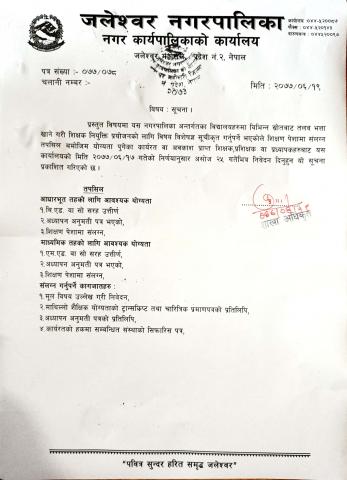 जलेश्वर नगरपालिका
नगर कार्यपालिकाको कार्यालय
जलेश्वर महोत्तरी, प्रदेश नं.२, नेपाल
पत्र संख्या :- ०७७/०७८
चलानी नम्बर :-
मिति : २०७७/०६/१९
विषय : सूचना ।
प्रस्तुत विषयमा यस नगरपालिका अन्तर्गतका विद्यालयहरुमा विभिन्न स्रोतबाट तलब भत्ता
खाने गरी शिक्षक नियुक्ति प्रयोजनको लागि विषय विशेषज्ञ सूचीकृत गर्नुपर्ने भएकोले शिक्षण पेशामा संलग्न
तपसिल बमोजिम योग्यता पुगेका कार्यरत वा अवकाश प्राप्त शिक्षक,प्रशिक्षक वा प्रध्यापकहरुबाट यस
कार्यालयको मिति २०७७/०६/१७ गतेको निर्णयानुसार असोज २५ गतेभित्र निवेदन दिनुहुन यो सूचना
प्रकाशित गरिएको छ ।
तपसिल
आधारभूत तहको लागि आवश्यक योग्यता
१.बि.एड. वा सो सरह उत्तीर्ण
२.अध्यापन अनुमती पत्र भएको,
३.शिक्षण पेशामा संलग्न,
माध्यमिक तहको लागि आवश्यक योग्यता
१.एम.एड. वा सो सरह उत्तीर्ण,
२.अध्यापन अनुमती पत्र भएको,
३.शिक्षण पेशामा संलग्न,
संलग्न गर्नुपर्ने कागजातहरु :
१.मूल विषय उल्लेख गरी निवेदन,
२.माथिल्लो शैक्षिक योग्यताको ट्रान्सक्रिप्ट तथा चारित्रिक प्रमाणपत्रको प्रतिलिपि,
३.अध्यापन अनुमती पत्रको प्रतिलिपि,
४.कार्यरतको हकमा सम्बन्धित संस्थाको सिफारिस पत्र,
शाखा अधिकृत
"पवित्र सुन्दर हरित समृद्ध जलेश्वर"